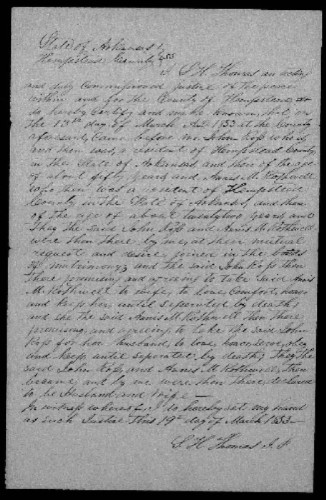 State of Arkansas
Hempstead County SS
I S. H. Thomas an acting
and duly Commissioned Justice of the peace
within and for the County of Hempstead do
do hereby Certify and make known that on
the 13th day of March A.D. 1853 at the County
aforesaid Came before me John Ross who is
and then was a resident of Hempstead County
in the State of Arkansas, and then of the age
of about fifty years and Annis M.
who then was a resident of Hempstead
County in the State of Arkansas, and then
of the age of about twenty two years and
they the said John Ross and Annis M.
were then there by me, at their mutual
request and desire joined in the bonds
of matrimony and the said John Ross then
there promised and agreeing to take said Annis
M. to wife to love Comfort honor
and keep her until seperated by death,
and she the said Annis M. then there
promising and agreeing to take the said John
Ross for her husband to love honor obey
and keep until seperated by death, They the
said John Ross and Annis M. then
became and by me were then there declared
to be Husband and Wife –
In witness whereof I do hereby set my hand
as such Justice This 19th day of March 1853 –
S. H. Thomas J. P.